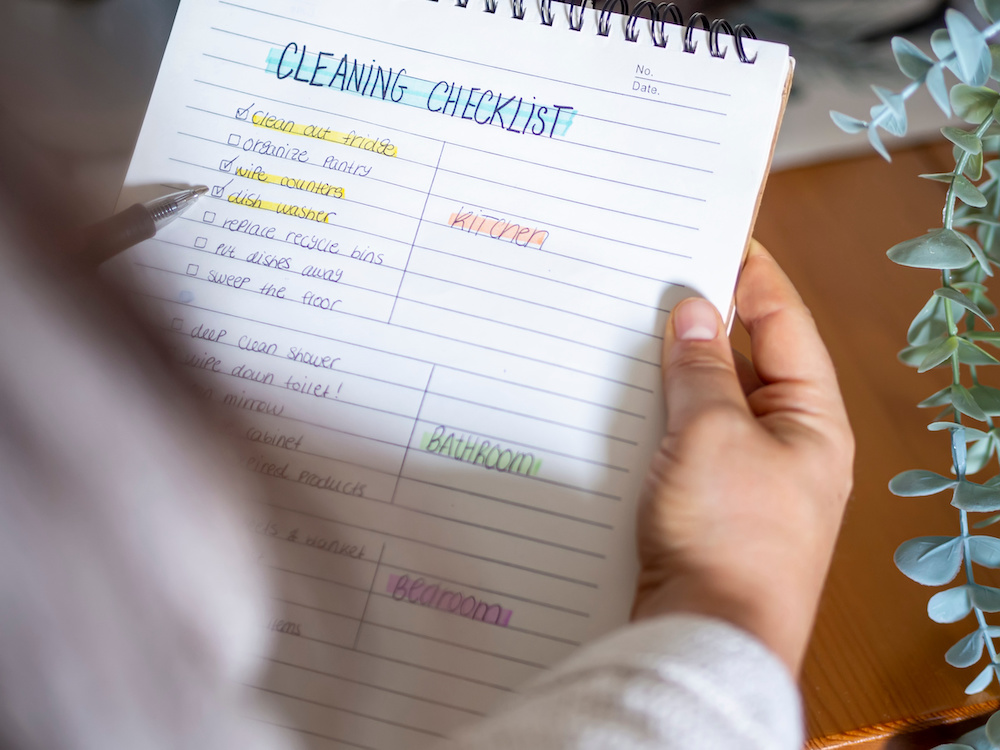 No.
Date.
CLEANING CHECKLIST
clean out fridge
organize pantry
wipe counters
dish washer
replace recycle bins
put dishes away
sweep the floor
kitchen
deep clean shower
wipe down toilet!
mirrow
cabinet
products
BATHROOM
& blanket
Bedroom